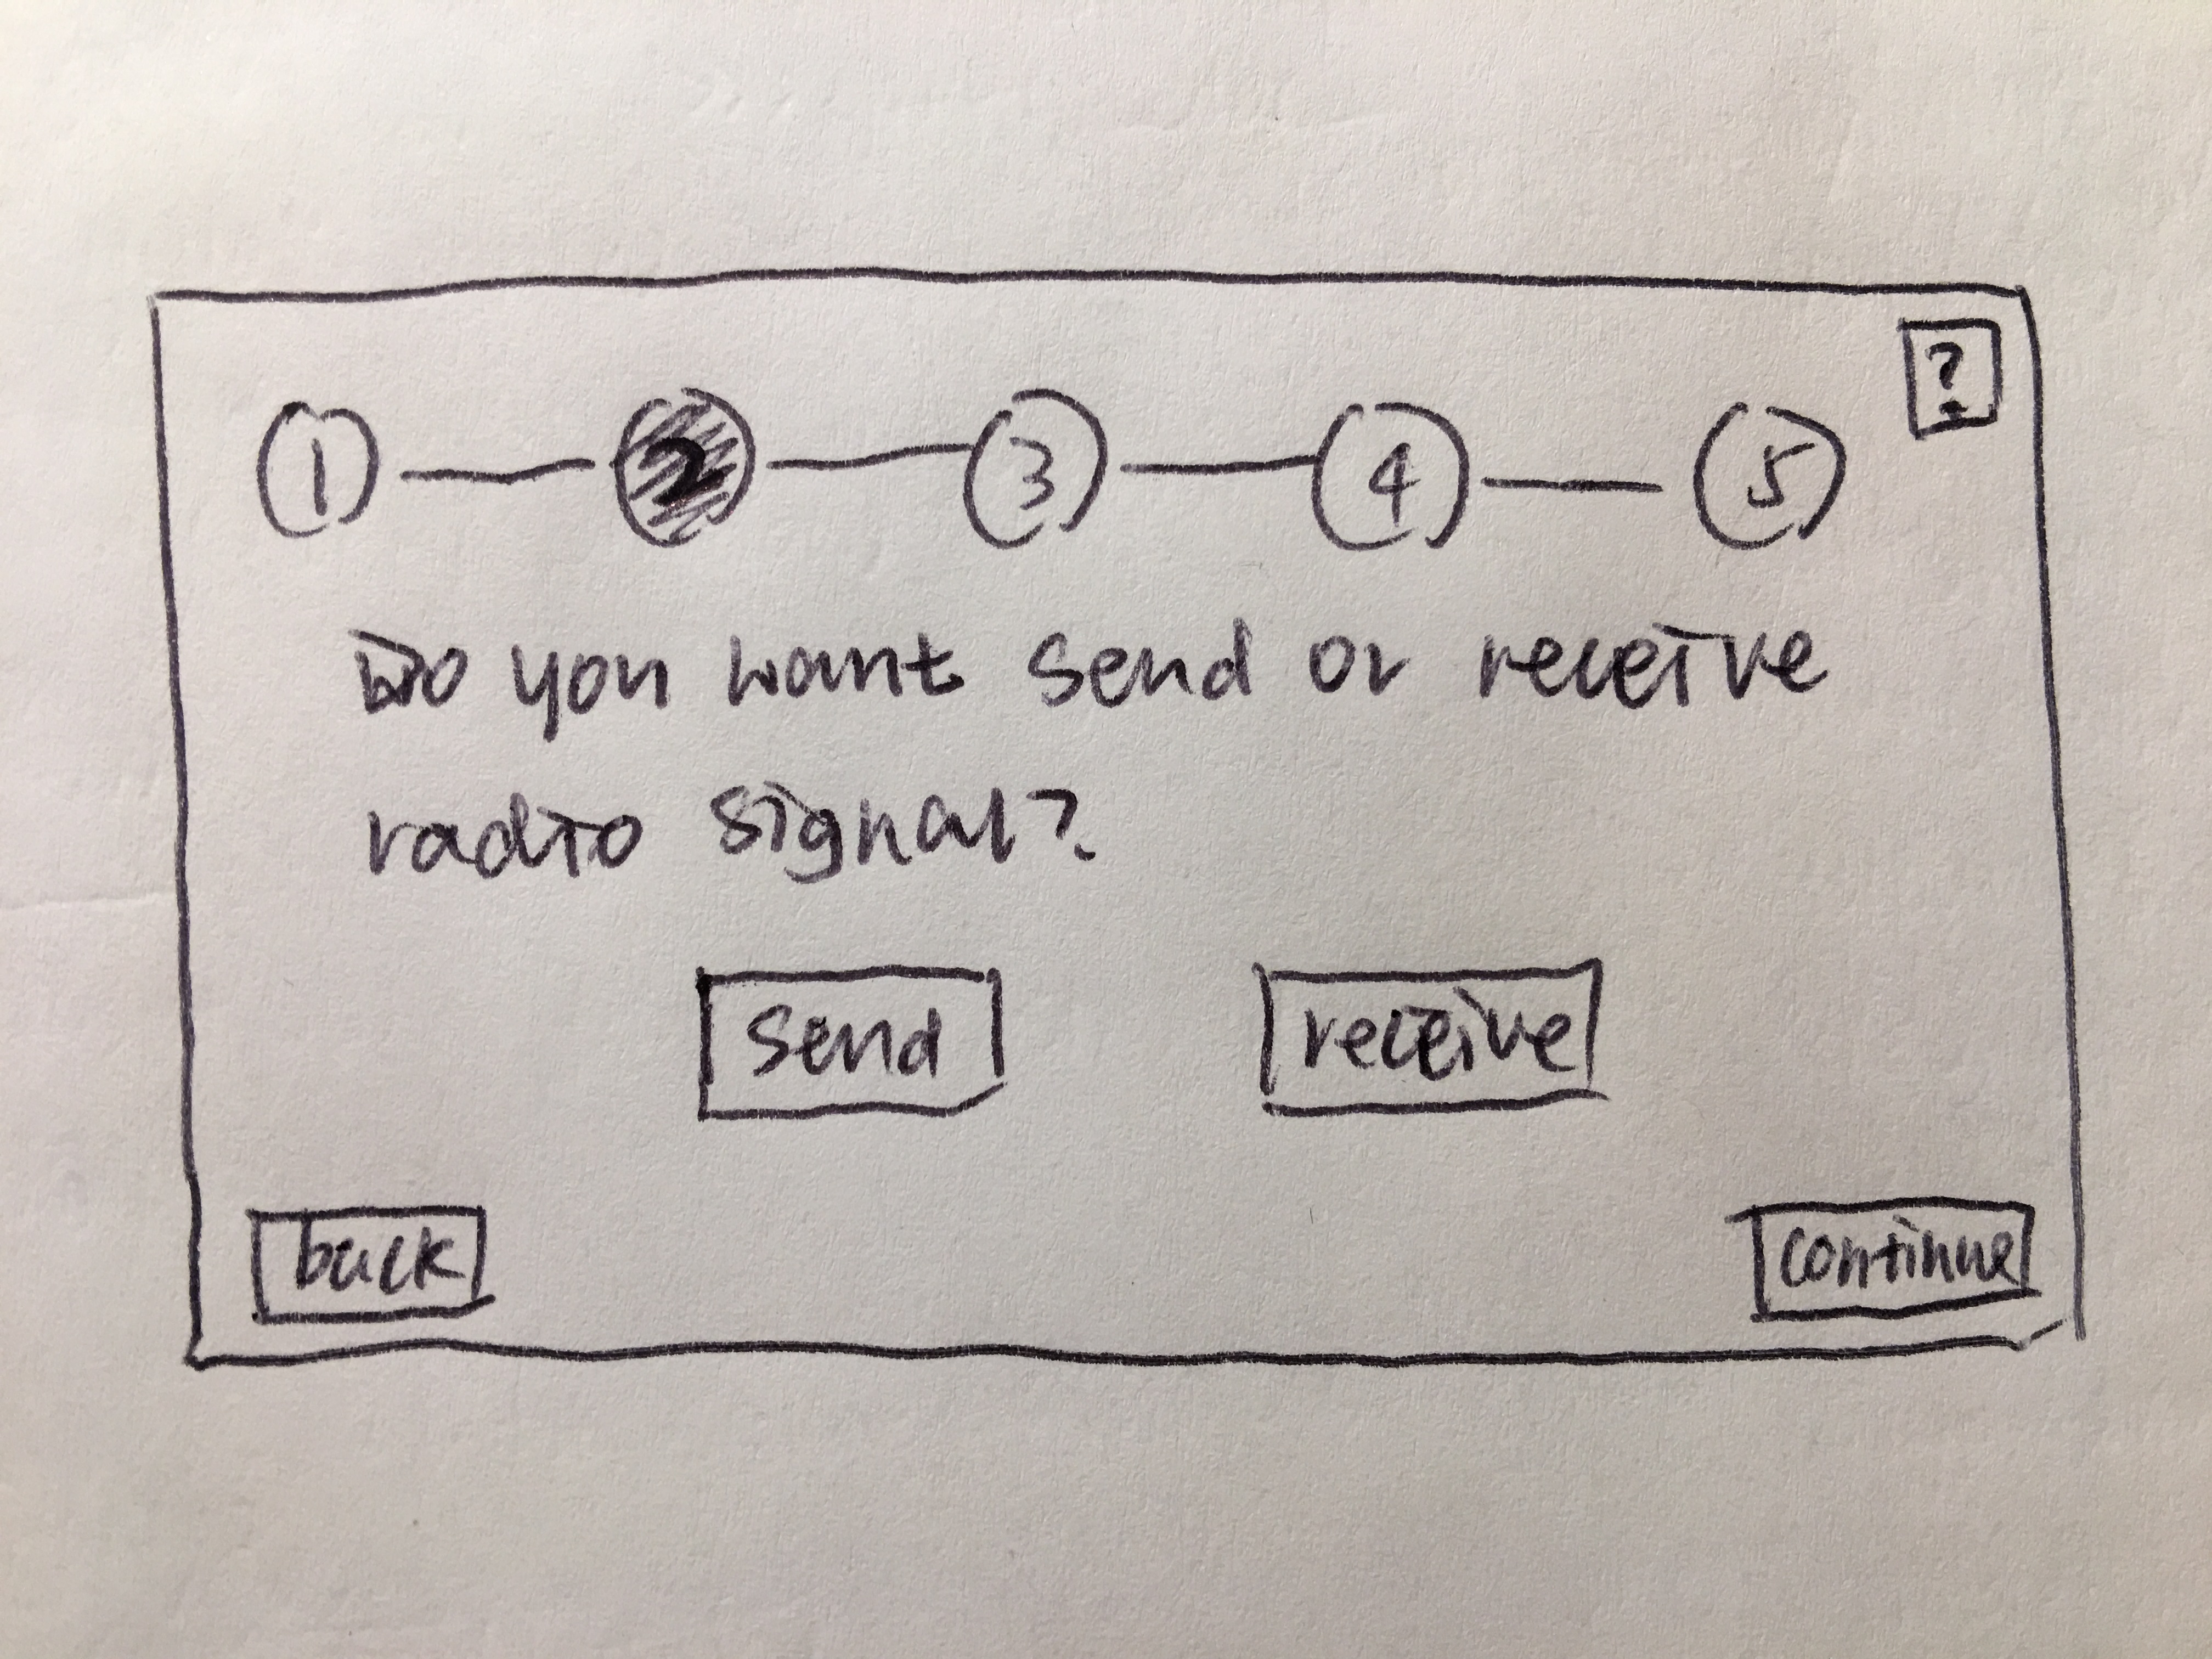 ?
1 2 3 4 5
Do you want send or receive
radio signal?
send receive
back continue